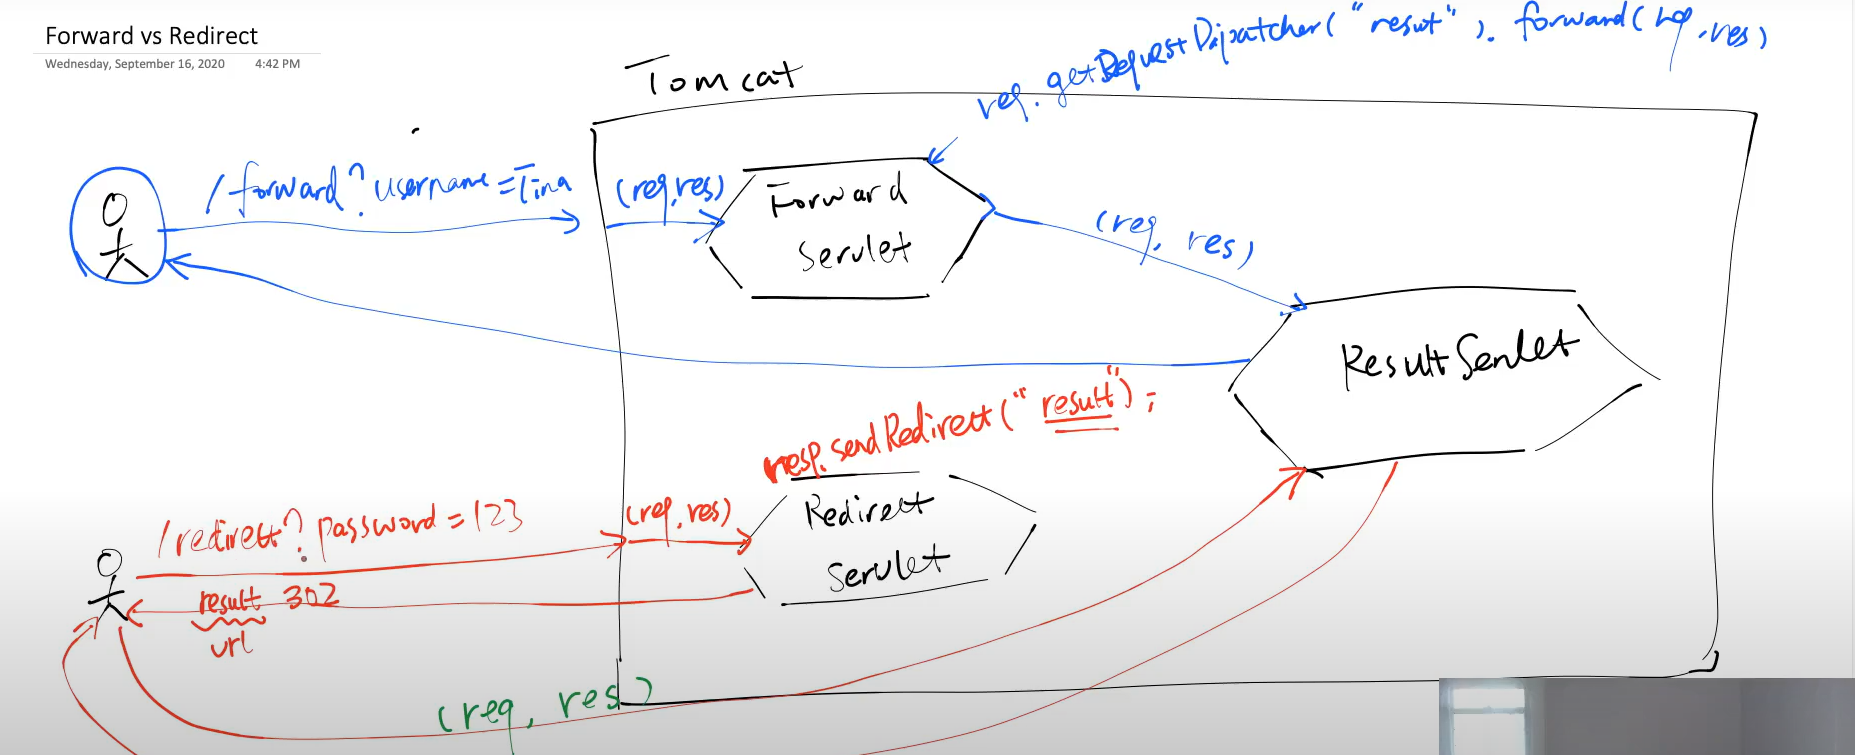 Forward vs Redirect
Wednesday, September 16, 2020 4:42 PM
Tomcat
req.getRequestDispatcher("result").forward(req,res)
/forward?username=Tina
(req,res)
Forward
Servlet
(req, res)
ResultServlet
resp.sendRedirect("result");
/redirect?password=123
(req,res)
Redirect
Servlet
result 302
url
(req, res)